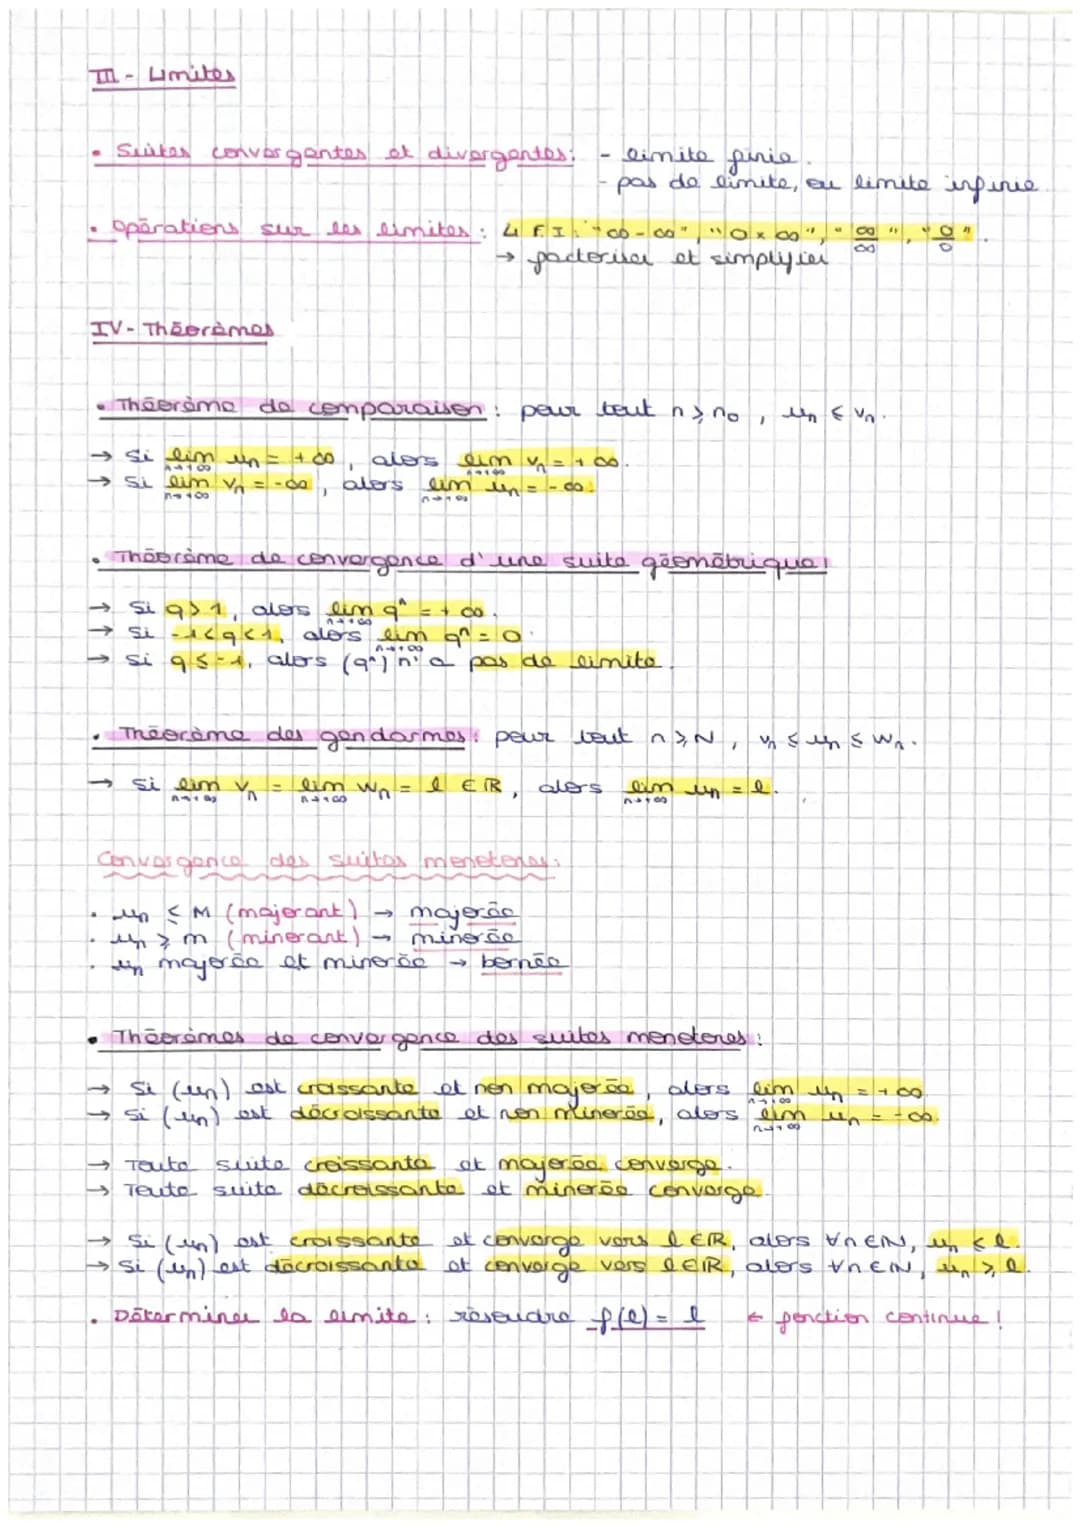 III - Limites
• Suites convergentes et divergentes: - limite finie.
- pas de limite, ou limite infinie.
• Opérations sur les limites : 4 F.I. "∞-∞", "0×∞", "∞/∞", "0/0".
→ factoriser et simplifier
IV - Théorèmes
• Théorème de comparaison : pour tout n ⩾ n₀, uₙ ⩽ vₙ.
→ Si lim uₙ = +∞, alors lim vₙ = +∞.
n→+∞ n→+∞
→ Si lim vₙ = -∞, alors lim uₙ = -∞.
n→+∞ n→+∞
• Théorème de convergence d'une suite géométrique:
→ Si q > 1, alors lim qⁿ = +∞.
n→+∞
→ Si -1<q<1, alors lim qⁿ = 0.
n→+∞
→ Si q ⩽ -1, alors (qⁿ) n'a pas de limite.
• Théorème des gendarmes: pour tout n ⩾ N, vₙ ⩽ uₙ ⩽ wₙ.
→ Si lim vₙ = lim wₙ = l ∈ ℝ, alors lim uₙ = l.
n→+∞ n→+∞ n→+∞
Convergence des suites monotones:
• uₙ ⩽ M (majorant) → majorée
• uₙ ⩾ m (minorant) → minorée
• uₙ majorée et minorée → bornée
• Théorèmes de convergence des suites monotones :
→ Si (uₙ) est croissante et non majorée, alors lim uₙ = +∞
n→+∞
→ Si (uₙ) est décroissante et non minorée, alors lim uₙ = -∞.
n→+∞
→ Toute suite croissante et majorée converge.
→ Toute suite décroissante et minorée converge.
→ Si (uₙ) est croissante et converge vers l ∈ ℝ, alors ∀n ∈ ℕ, uₙ ⩽ l.
→ Si (uₙ) est décroissante et converge vers l ∈ ℝ, alors ∀n ∈ ℕ, uₙ ⩾ l.
• Déterminer la limite : résoudre f(l) = l ← fonction continue !